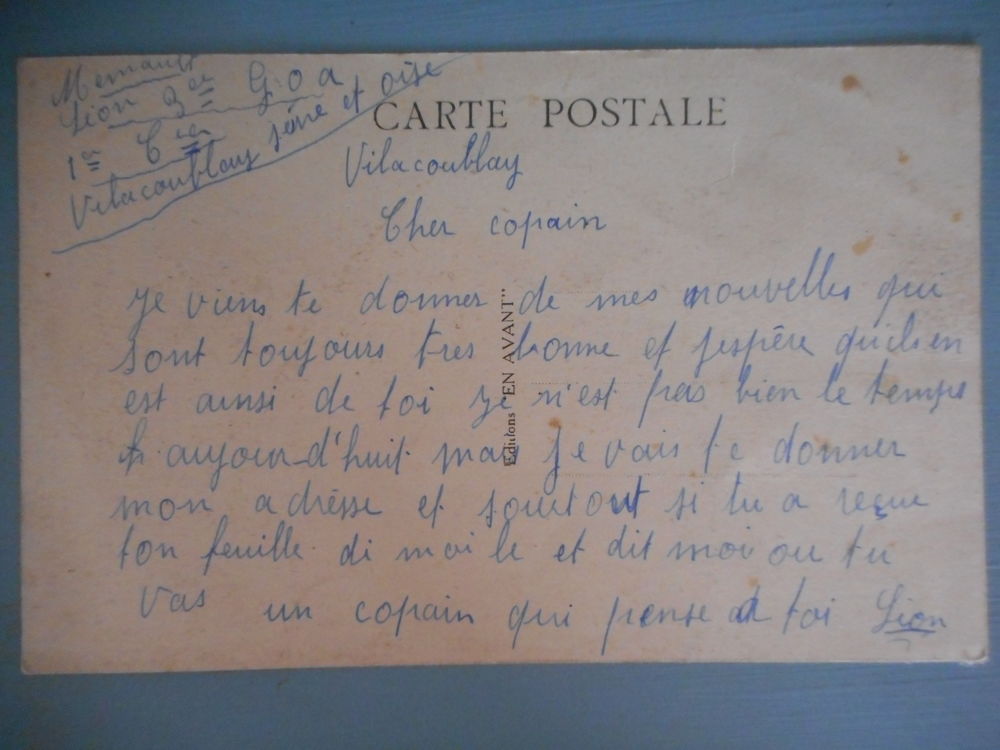 Mernault
Lion 3em G.o a
1er Cie
Vilacoublay seine et oise
CARTE POSTALE
Vilacoublay
Cher copain
Je viens te donner de mes nouvelles qui
sont toujours tres bonne et jespère quils en
est ainsi de toi je n'est pas bien le temps
aujour-d'huit mais je vais te donner
mon adrèsse et sourtout si tu a reçue
ton feuille di moi le et dit moi ou tu
vas un copain qui pense à toi Lion
Editions "EN AVANT"